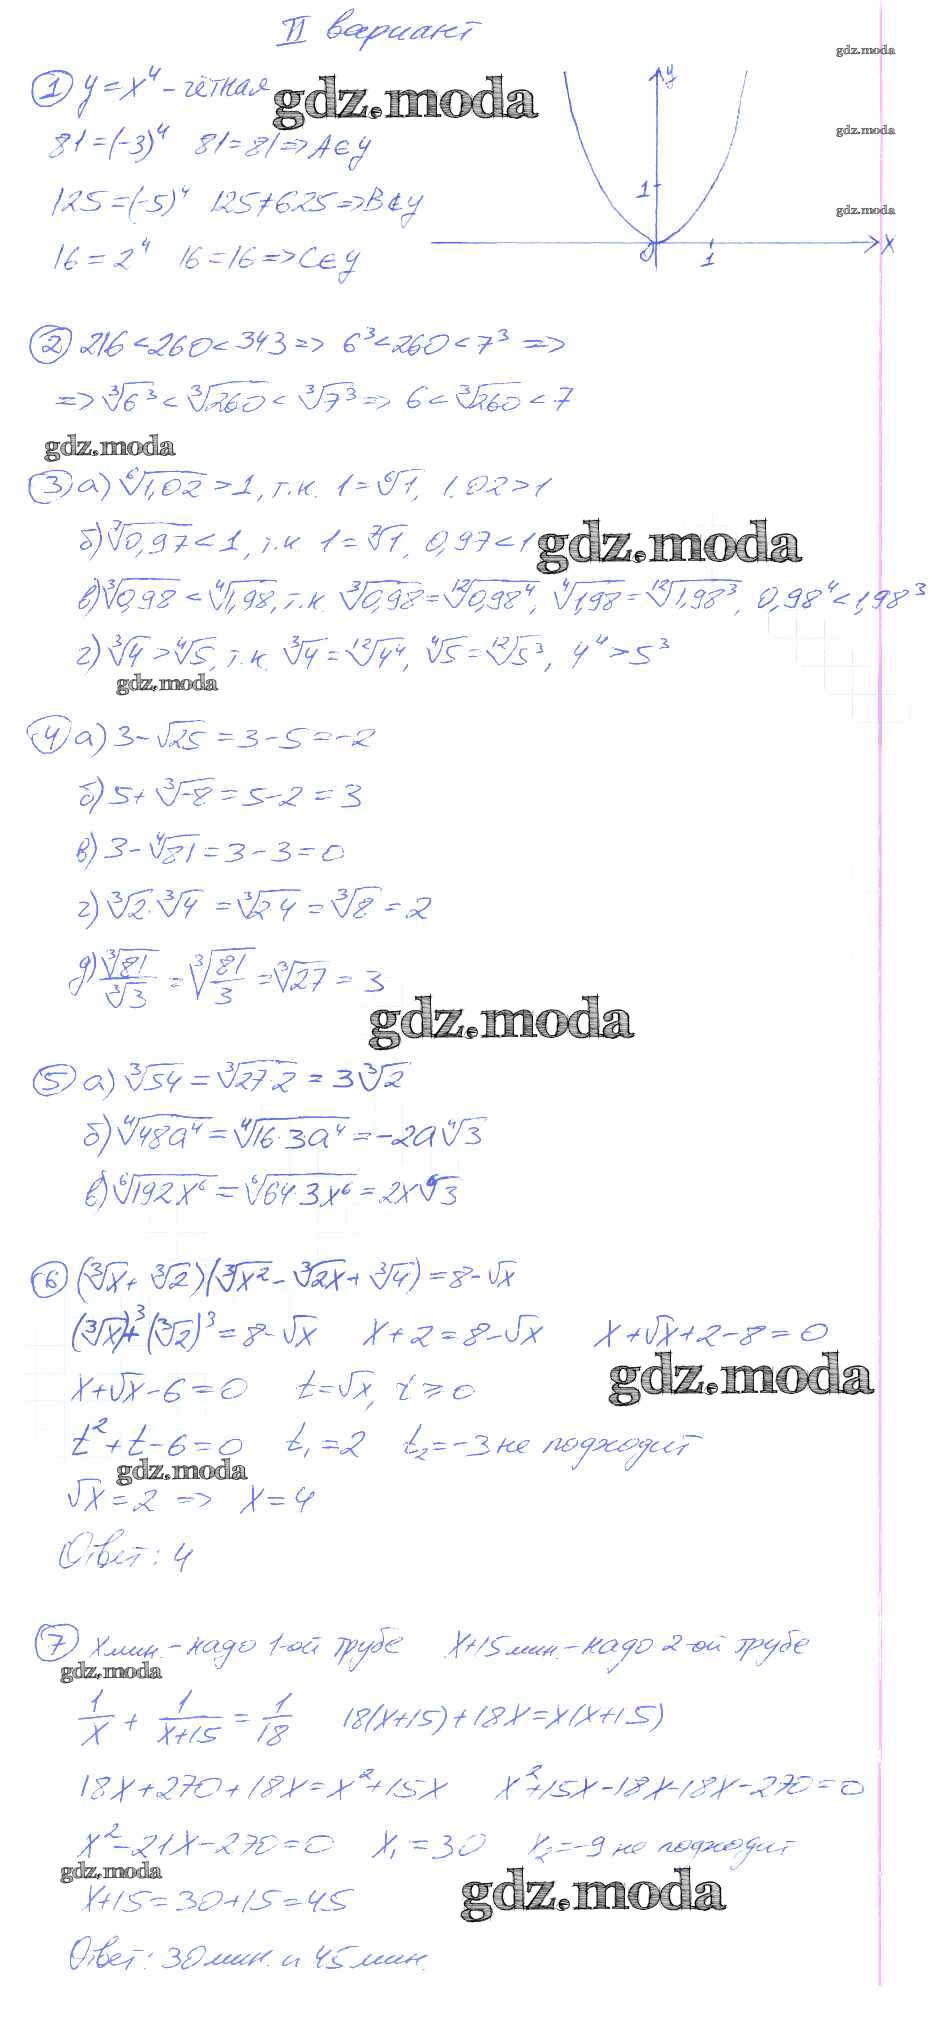 II вариант
gdz.moda
① y = x⁴ – чётная
gdz.moda
y
gdz.moda
81 = (-3)⁴ 81 = 81 => A∈y
125 = (-5)⁴ 125 ≠ 625 => B∉y
1
gdz.moda
16 = 2⁴ 16 = 16 => C∈y
0 1 x
② 216 < 260 < 343 => 6³ < 260 < 7³ =>
=> ∛6³ < ∛260 < ∛7³ => 6 < ∛260 < 7
gdz.moda
③ а) ⁶√1,02 > 1, т.к. 1 = ⁶√1, 1.02 > 1
б) ⁷√0,97 < 1, т.к. 1 = ⁷√1, 0,97 < 1
gdz.moda
в) ∛0,98 < ∜1,98, т.к. ∛0,98 = ¹²√0,98⁴, ∜1,98 = ¹²√1,98³, 0,98⁴ < 1,98³
г) ∛4 > ∜5, т.к. ∛4 = ¹²√4⁴, ∜5 = ¹²√5³, 4⁴ > 5³
gdz.moda
④ а) 3 - √25 = 3 - 5 = -2
б) 5 + ∛-8 = 5 - 2 = 3
в) 3 - ∜81 = 3 - 3 = 0
г) ∛2 · ∛4 = ∛2·4 = ∛8 = 2
д) ∛81/∛3 = ∛(81/3) = ∛27 = 3
gdz.moda
⑤ а) ∛54 = ∛27·2 = 3∛2
б) ∜48a⁴ = ∜16·3a⁴ = -2a∜3
в) ⁶√192x⁶ = ⁶√64·3x⁶ = 2x⁶√3
⑥ (∛x + ∛2)(∛x² - ∛2x + ∛4) = 8 - √x
(∛x)³ + (∛2)³ = 8 - √x x + 2 = 8 - √x x + √x + 2 - 8 = 0
gdz.moda
x + √x - 6 = 0 t = √x, t ≥ 0
t² + t - 6 = 0 t₁ = 2 t₂ = -3 не подходит
gdz.moda
√x = 2 => x = 4
Ответ: 4
⑦ x мин. – надо 1-ой трубе x+15 мин. – надо 2-ой трубе
gdz.moda
1/x + 1/(x+15) = 1/18 18(x+15) + 18x = x(x+15)
18x + 270 + 18x = x² + 15x x² + 15x - 18x - 18x - 270 = 0
x² - 21x - 270 = 0 x₁ = 30 x₂ = -9 не подходит
gdz.moda
x + 15 = 30 + 15 = 45
gdz.moda
Ответ: 30 мин. и 45 мин.